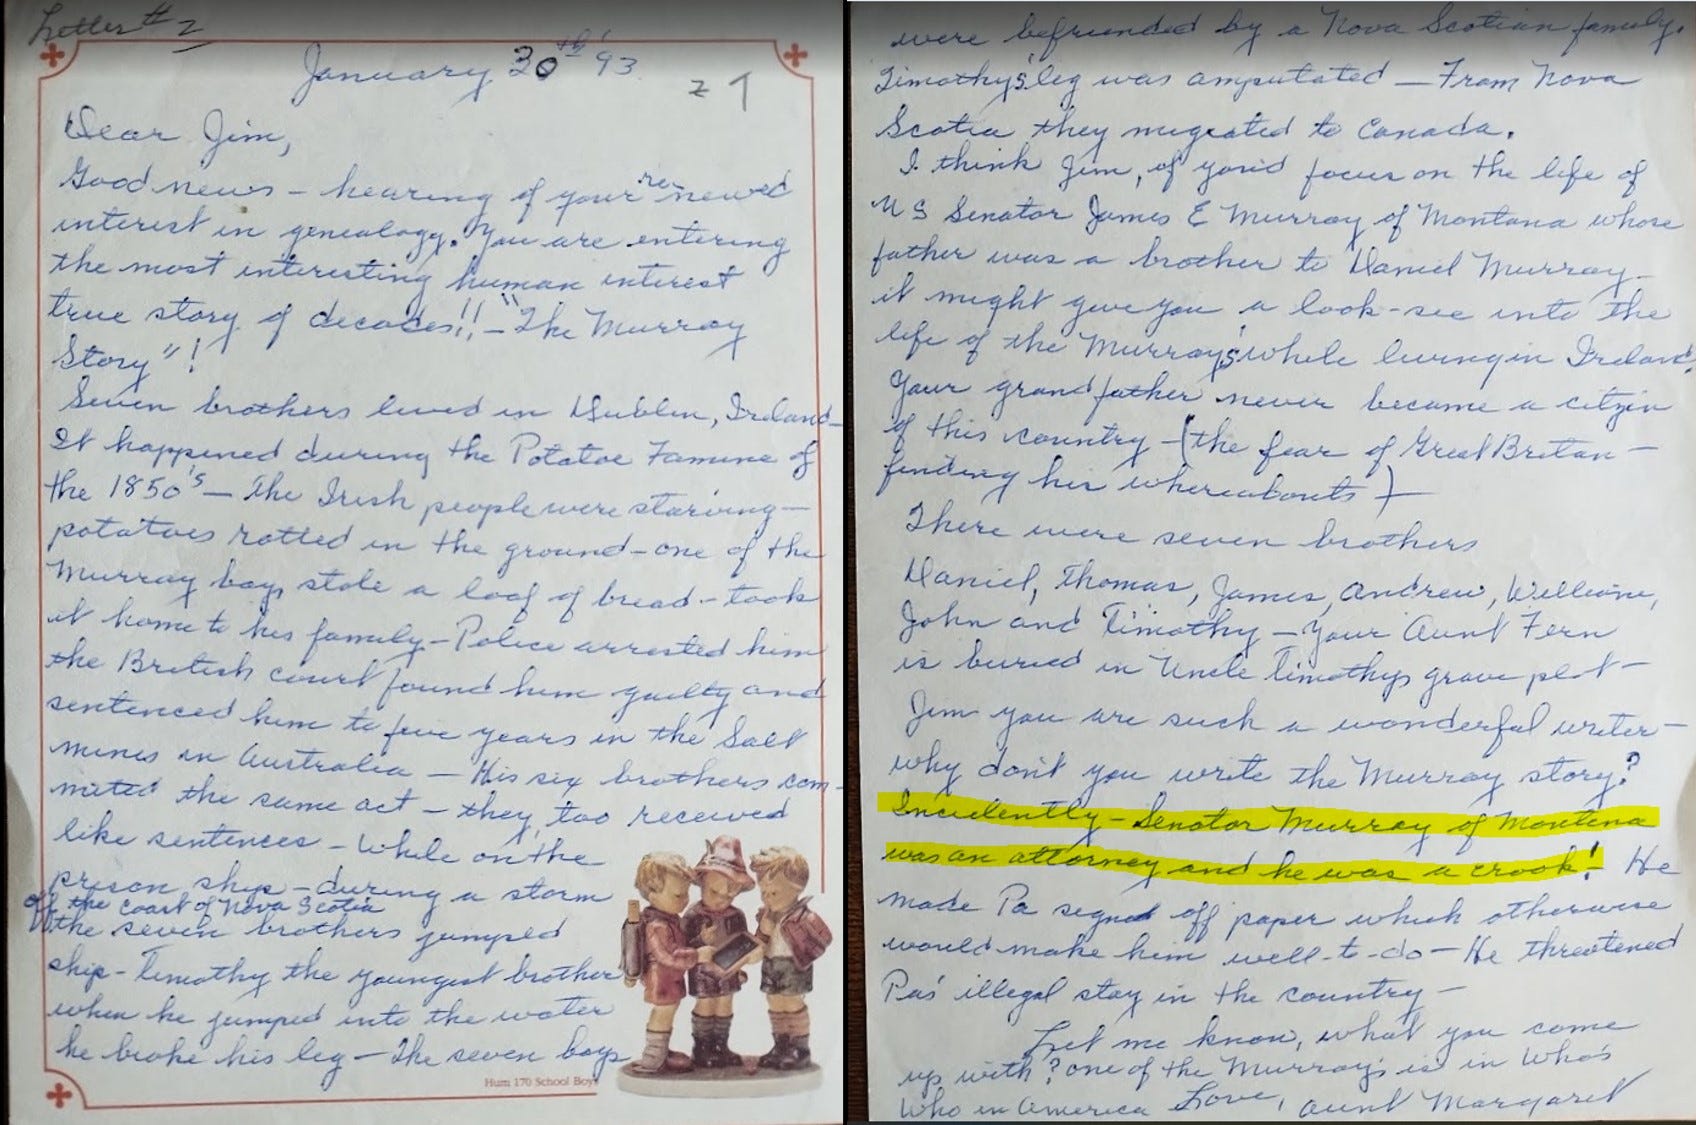 Letter # 2
January 30th '93
z 1
Dear Jim,
Good news - hearing of your renewed
interest in genealogy. You are entering
the most interesting human interest
true story of decades!! - "The Murray
Story"!
Seven brothers lived in Dublin, Ireland -
It happened during the Potatoe Famine of
the 1850's - The Irish people were starving -
potatoes rotted in the ground - one of the
Murray boys stole a loaf of bread - took
it home to his family - Police arrested him
the British court found him guilty and
sentenced him to five years in the Salt
mines in Australia - His six brothers com-
mited the same act - they, too received
like sentences - While on the
prison ship - during a storm
off the coast of Nova Scotia
the seven brothers jumped
ship - Timothy the youngest brother
when he jumped into the water
he broke his leg - The seven boys
Hum 170 School Boys
were befriended by a Nova Scotian family.
Timothy's leg was amputated - From Nova
Scotia they migrated to Canada.
I think Jim, if you'd focus on the life of
U S Senator James E Murray of Montana whose
father was a brother to Daniel Murray -
it might give you a look-see into the
life of the Murray's while living in Ireland.
Your grandfather never became a citzen
of this country - (the fear of Great Britan -
finding his whereabouts) -
There were seven brothers
Daniel, Thomas, James, Andrew, William,
John and Timothy - Your Aunt Fern
is buried in Uncle Timothys grave plot -
Jim you are such a wonderful writer -
why don't you write the Murray story?
Incidently - Senator Murray of Montana
was an attorney and he was a crook! He
made Pa signed off paper which otherwise
would make him well-to-do - He threatened
Pa's illegal stay in the country -
Let me know, what you come
up with? one of the Murray's is in Who's
Who in America Love, Aunt Margaret